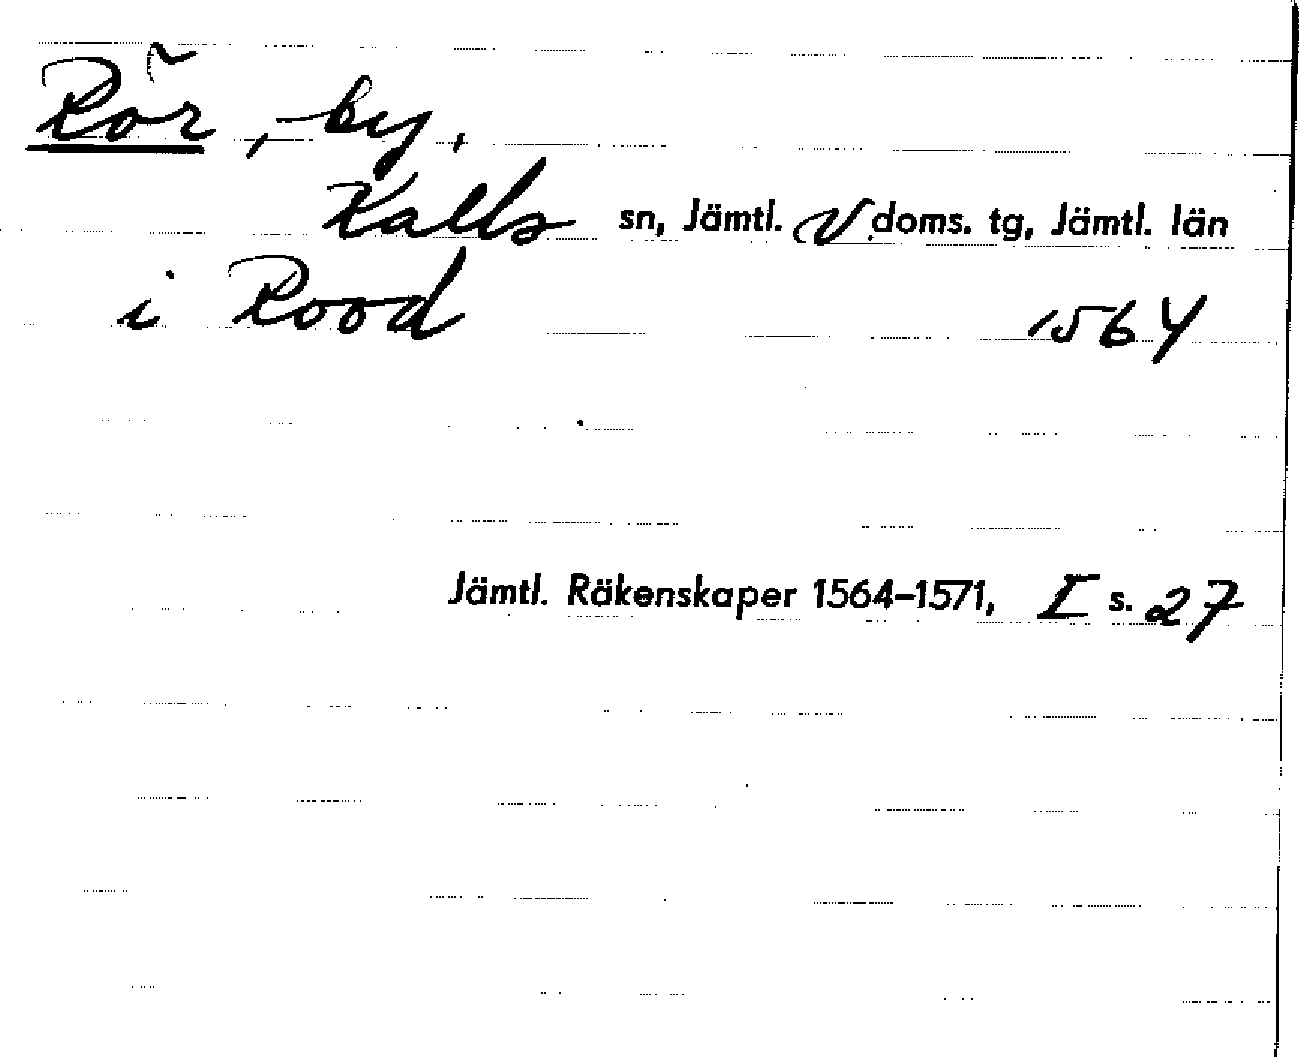 Rör, by,
Kalls sn, Jämtl. V doms. tg, Jämtl. län
i Rood 1564
Jämtl. Räkenskaper 1564–1571, I s. 27